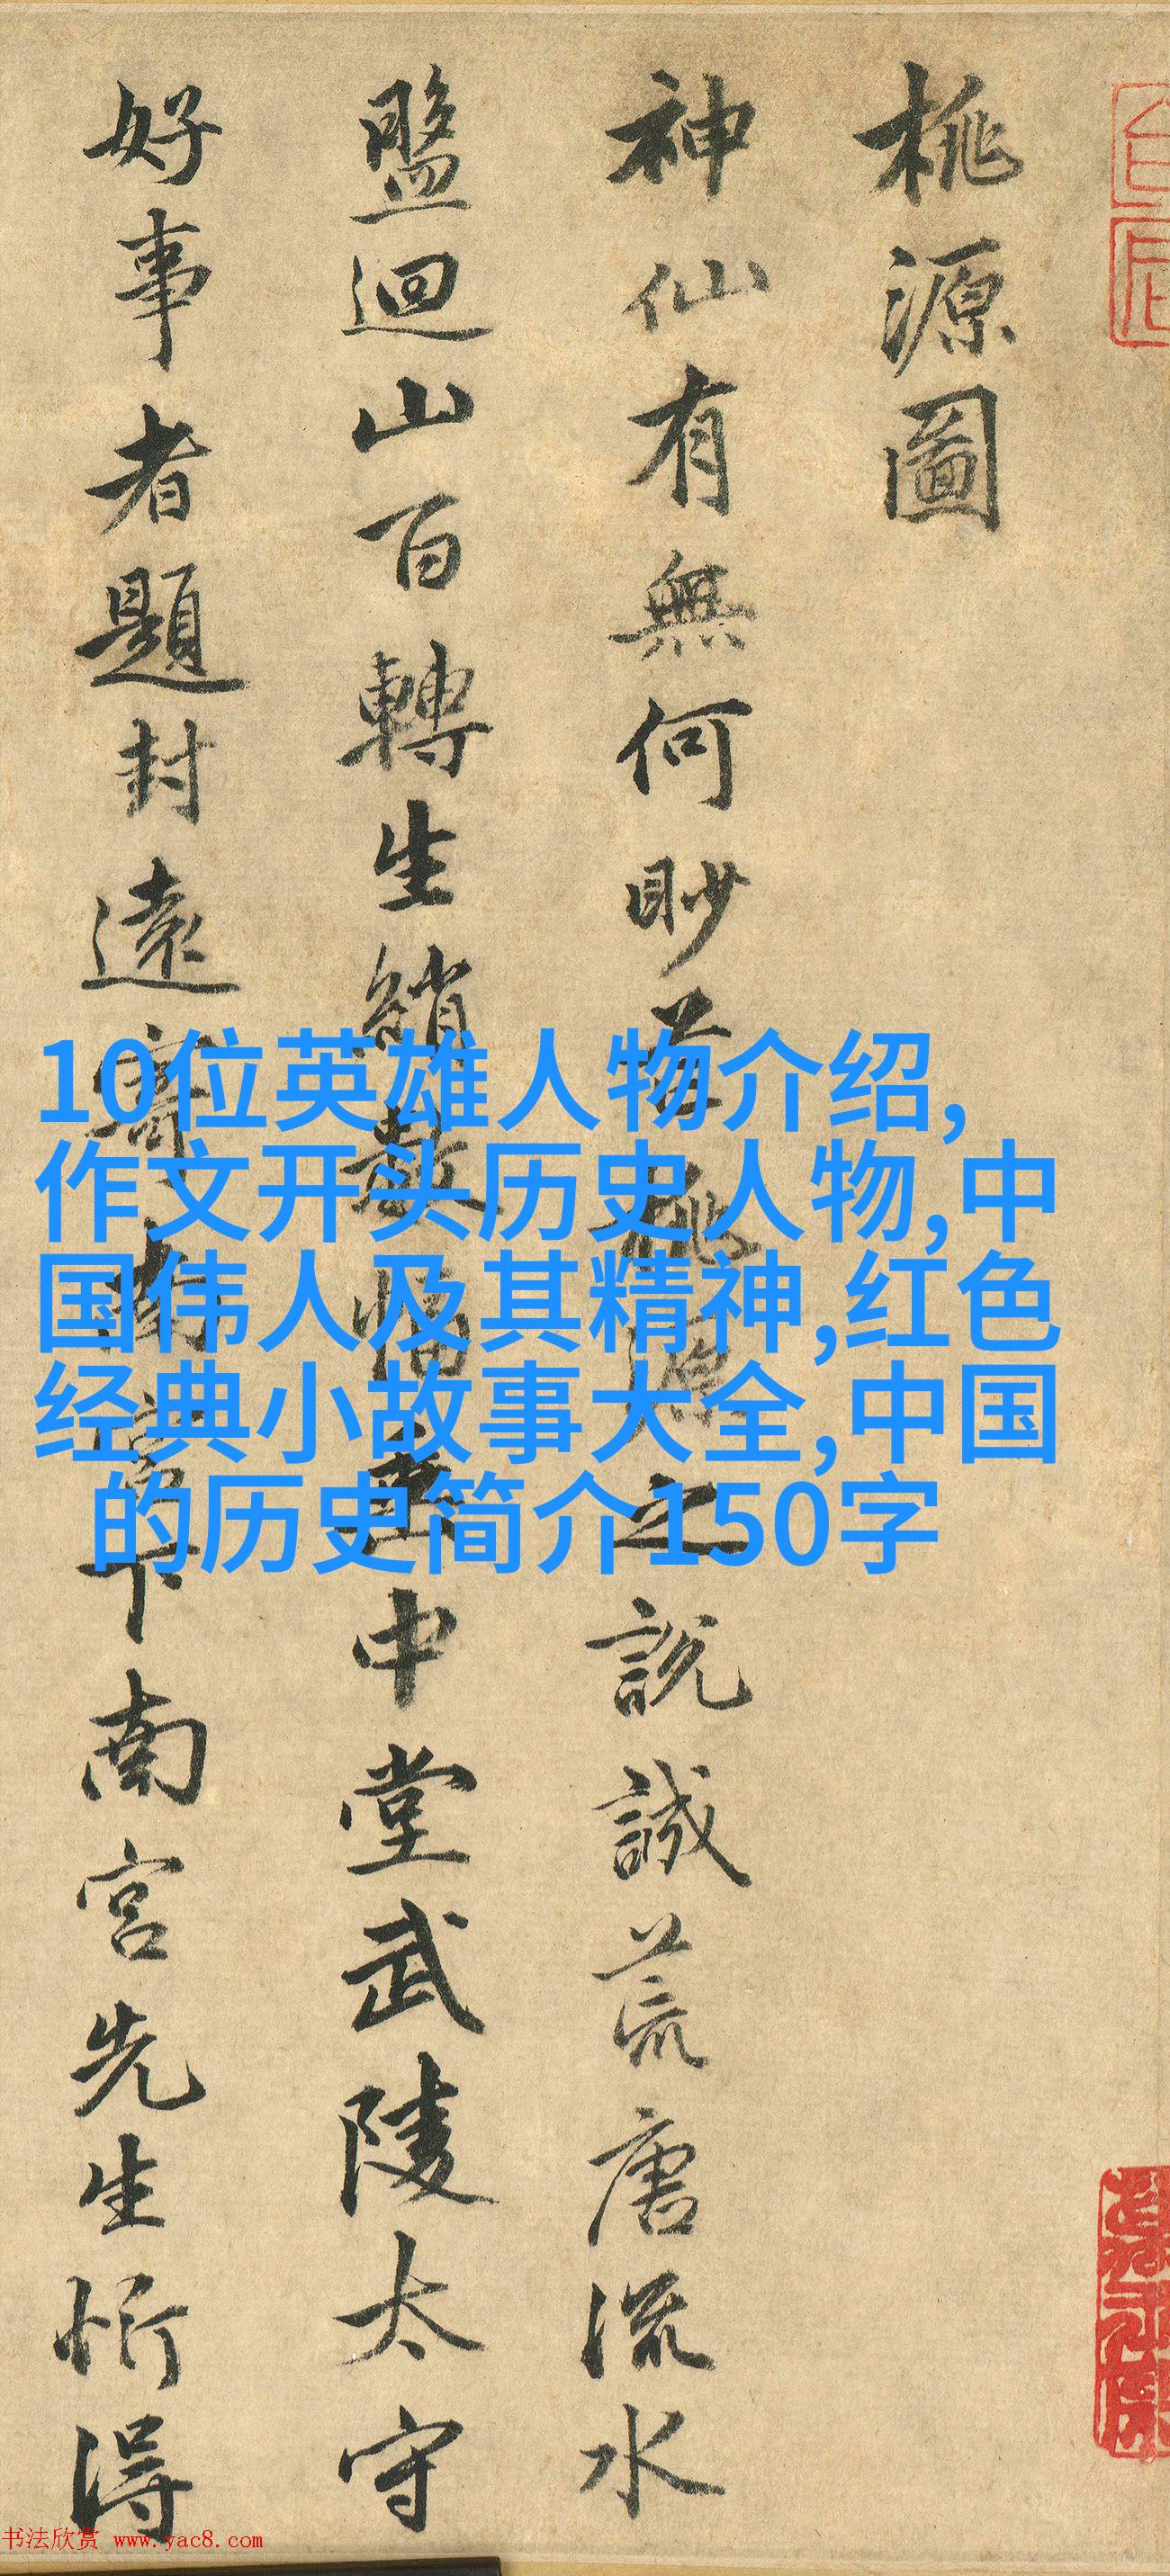 桃源圖
神仙有無何眇芒桃源之說誠荒唐流水
盤迴山百轉生綃數幅垂中堂武陵太守
好事者題封遠寄南宮下南宮先生忻得
10位英雄人物介绍,
作文开头历史人物,中
国伟人及其精神,红色
经典小故事大全,中国
的历史简介150字
书法欣赏 www.yac8.com